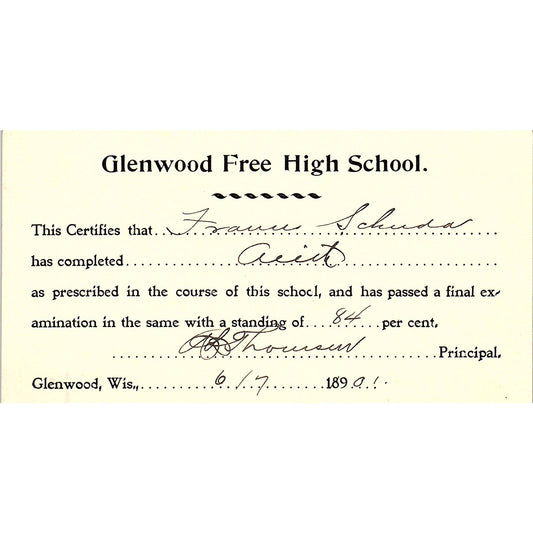 Glenwood Free High School.
This Certifies that Schuda
has completed
as prescribed in the course of this school, and has passed a final ex-
amination in the same with a standing of 84 per cent.
Thomsen Principal.
Glenwood, Wis., 6/7 18901.